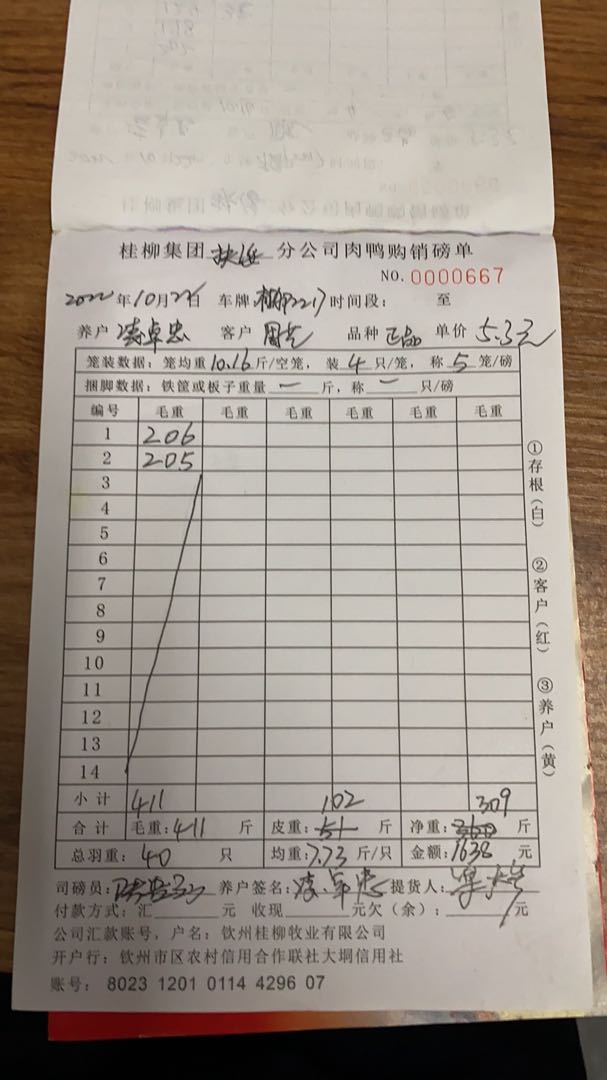 桂柳集团 分公司肉鸭购销磅单
NO. 0000667
2022年10月 日 车牌 时间段: 至
养户 凌卓忠 客户 周 品种 正品 单价 5.3元
笼装数据: 笼均重10.16斤/空笼, 装4只/笼, 称5笼/磅
捆脚数据: 铁筐或板子重量 一 斤, 称 一 只/磅
编号 毛重 毛重 毛重 毛重 毛重 毛重
1 206
2 205
3
4
5
6
7
8
9
10
11
12
13
14
小计 411 102 309
合计 毛重:411 斤 皮重:51 斤 净重:360 斤
总羽重: 40 只 均重:7.73斤/只 金额:1638元
司磅员: 养户签名:凌卓忠 提货人:
付款方式: 汇 元 收现 元欠(余): 元
公司汇款账号, 户名: 钦州桂柳牧业有限公司
开户行: 钦州市区农村信用合作联社大垌信用社
账号: 8023 1201 0114 4296 07
①存根(白)
②客户(红)
③养户(黄)